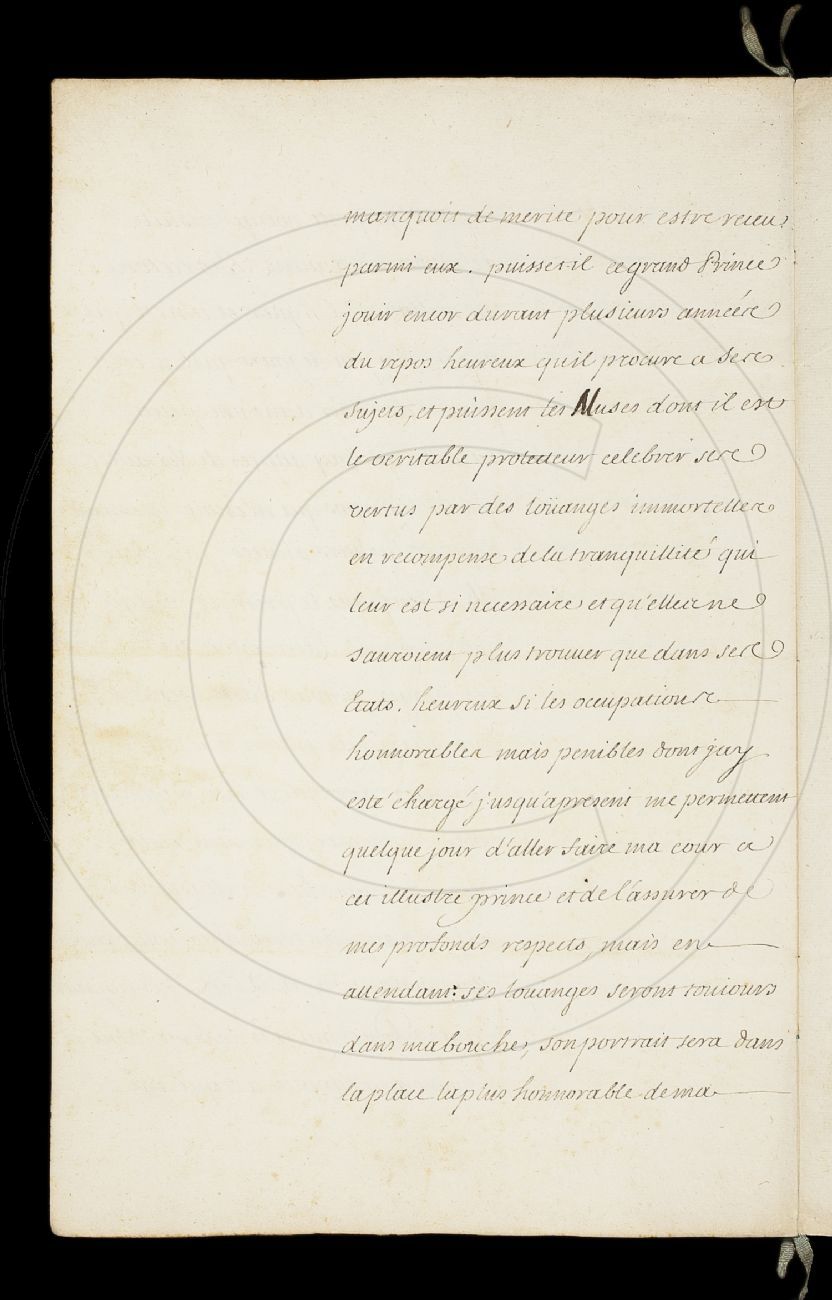 manquoit de merite pour estre receu
parmi eux. puisset il ce grand Prince
jouir encor durant plusieurs années
du repos heureux quil procure a ses
sujets, et puissent les Muses dont il est
le veritable protecteur celebrer ses
vertus par des loüanges immortelles
en recompense de la tranquillité qui
leur est si necessaire et qu'elles ne
sauroient plus trouver que dans ses
Etats. heureux si les occupations
honnorables mais penibles dont jay
esté chargé jusqu'apresent me permettent
quelque jour d'aller faire ma cour a
cet illustre prince et de l'assurer de
mes profonds respects, mais en
attendant ses louanges seront toujours
dans ma bouche, son portrait sera dans
la place la plus honnorable de ma